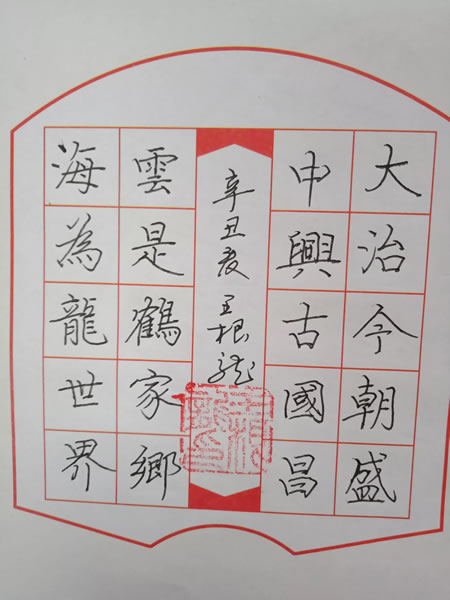 大治今朝盛
中興古國昌
辛丑夏 王根龍
雲是鶴家鄉
海為龍世界